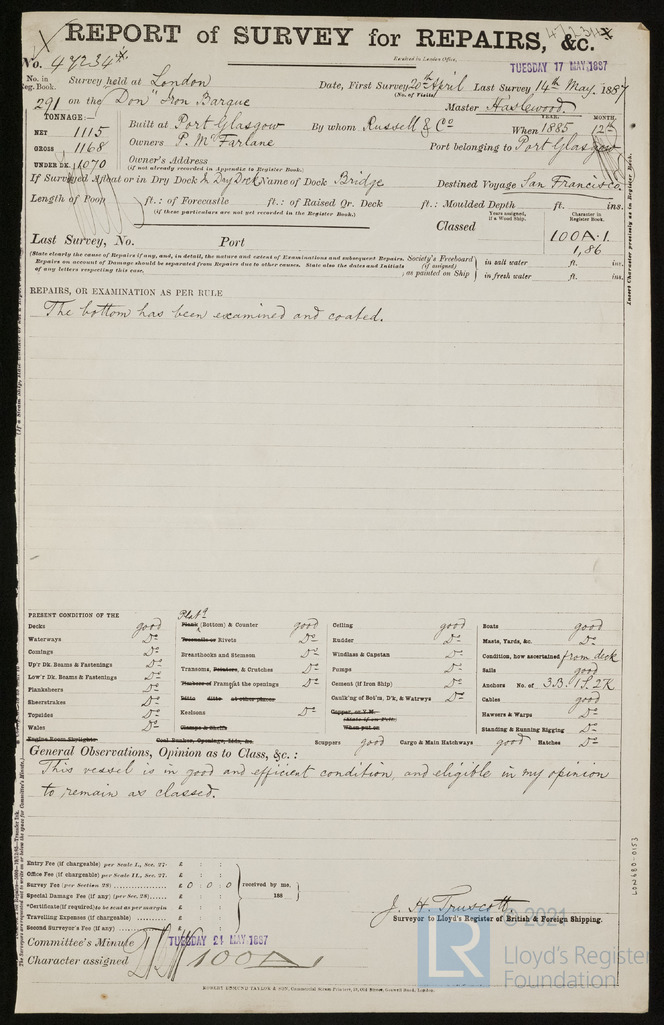 REPORT of SURVEY for REPAIRS, &c.
No. 47234
Received in London Office,
TUESDAY 17 MAY 1887
No. in Reg. Book.
Survey held at London
Date, First Survey 20th April Last Survey 14th May. 1887
(No. of Visits)
291 on the "Don" Iron Barque
Master Haslewood.
TONNAGE:—
NET 1115
GROSS 1168
UNDER DK. 1070
Built at Port Glasgow By whom Russell & Co When 1885 12th
YEAR. MONTH.
Owners P. McFarlane Port belonging to Port Glasgow
Owner's Address
(if not already recorded in Appendix to Register Book.)
If Surveyed Afloat or in Dry Dock In Dry Dock Name of Dock Bridge Destined Voyage San Francisco.
Length of Poop ft.: of Forecastle ft.: of Raised Qr. Deck ft.: Moulded Depth ft. ins.
(if these particulars are not yet recorded in the Register Book.)
Years assigned, if a Wood Ship.
Character in Register Book.
Classed 100A.1.
1,86
Last Survey, No. Port
(State clearly the cause of Repairs if any, and, in detail, the nature and extent of Examinations and subsequent Repairs.
Repairs on account of Damage should be separated from Repairs due to other causes. State also the dates and Initials
of any letters respecting this case.
Society's Freeboard (if assigned) as painted on Ship
in salt water ft. ins.
in fresh water ft. ins.
Insert Character precisely as in Register Book.
REPAIRS, OR EXAMINATION AS PER RULE
The bottom has been examined and coated.
PRESENT CONDITION OF THE
Decks good
Waterways Do
Comings Do
Up'r Dk. Beams & Fastenings Do
Low'r Dk. Beams & Fastenings Do
Planksheers Do
Sheerstrakes Do
Topsides Do
Wales Do
Engine Room Skylights
Plank (Bottom) & Counter good
Treenails or Rivets Do
Breasthooks and Stemson Do
Transoms, Pointers, & Crutches Do
Timbers or Frames at the openings Do
Ditto ditto at other places
Keelsons Do
Clamps & Shelfs
Coal Bunker, Openings, Lids, &c.
Ceiling good
Rudder Do
Windlass & Capstan Do
Pumps Do
Cement (if Iron Ship) Do
Caulk'ng of Bot'm, D'k, & Watrwys Do
Copper, or Y.M.
(State if on Felt)
When put on
Scuppers good Cargo & Main Hatchways good Hatches Do
Boats good
Masts, Yards, &c. Do
Condition, how ascertained from deck
Sails good
Anchors No. of 3.B. 1S. 2K
Cables good
Hawsers & Warps Do
Standing & Running Rigging Do
General Observations, Opinion as to Class, &c.:
This vessel is in good and efficient condition, and eligible in my opinion
to remain as classed.
Entry Fee (if chargeable) per Scale I., Sec. 27. £ : :
Office Fee (if chargeable) per Scale II., Sec. 27. £ : :
Survey Fee (per Section 28) £ 0 : 0 : 0
Special Damage Fee (if any) (per Sec. 28) £ : :
*Certificate (if required) to be sent as per margin £ : :
Travelling Expenses (if chargeable) £ : :
Second Surveyor's Fee (if any) £ : :
received by me,
188
J. H. Truscott
Surveyor to Lloyd's Register of British & Foreign Shipping.
Committee's Minute TUESDAY 24 MAY 1887
Character assigned 100A1
ROBERT EDMUND TAYLOR & SON, Commercial Steam Printers, 19, Old Street, Goswell Road, London.
LON480-0153
© 2021
LR
Lloyd's Register
Foundation